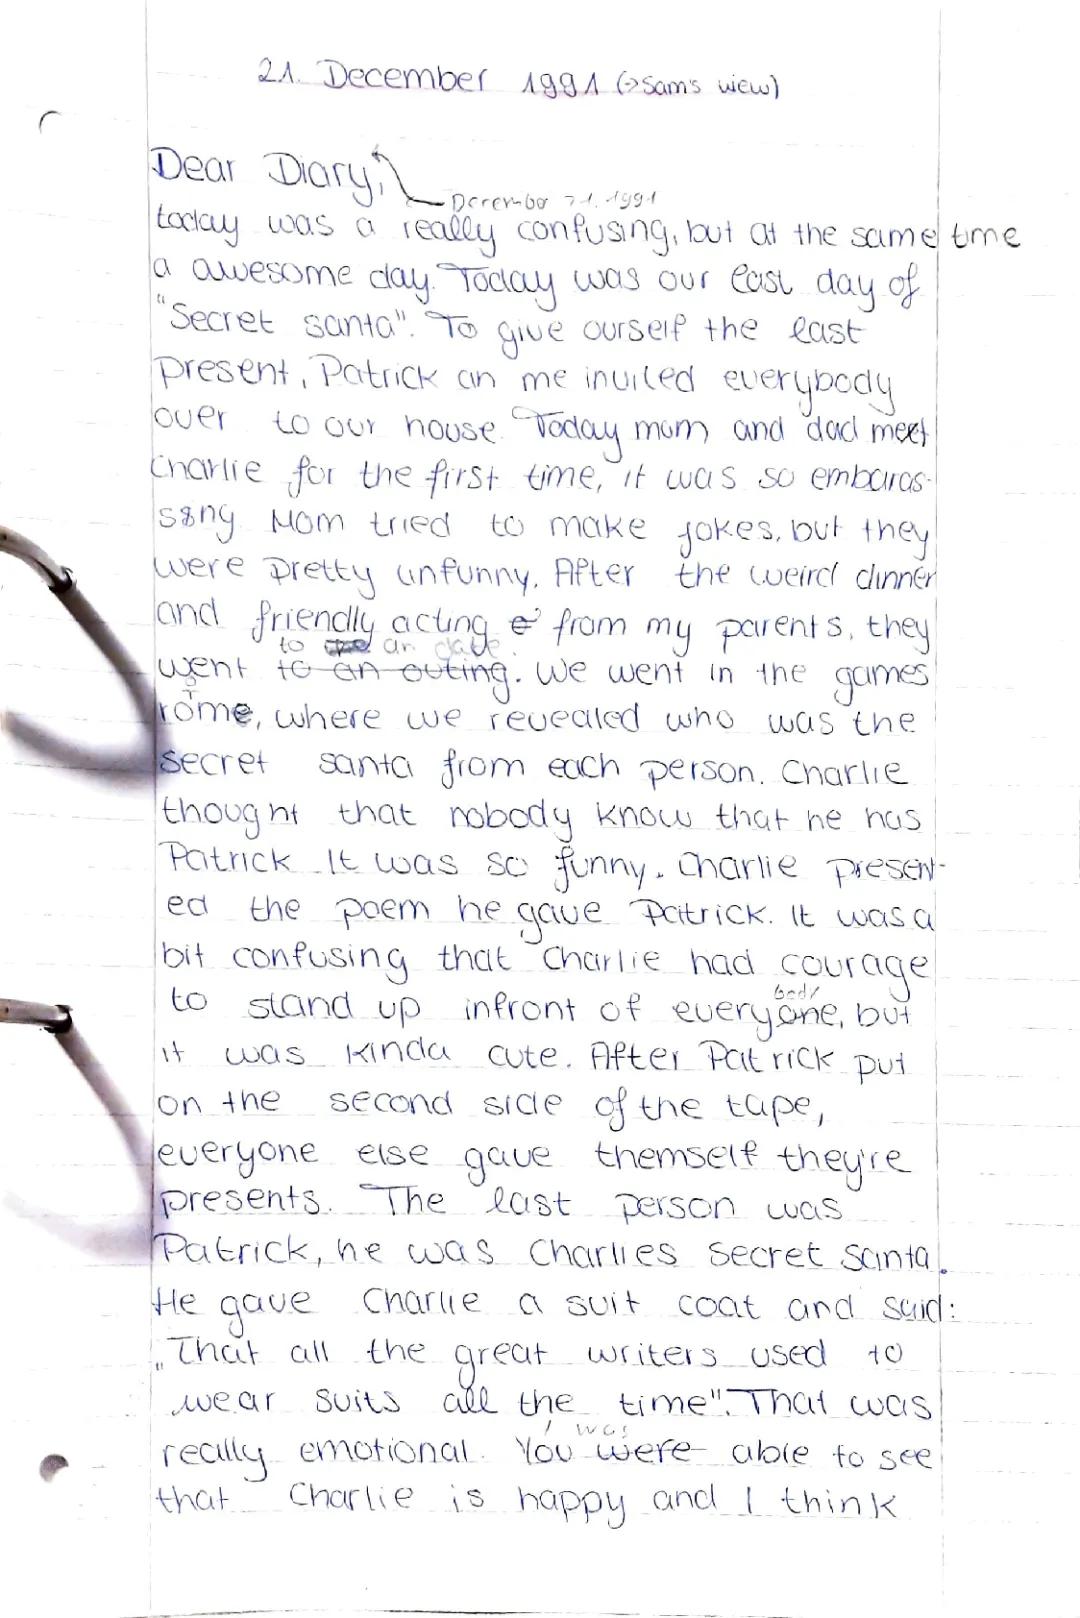 21. December 1991 (→Sam's wiew)
Dear Diary,
December 21. 1991
today was a really confusing, but at the same time
a awesome day. Today was our last day of
"Secret santa". To give ourself the last
present, Patrick an me invited everybody
over to our house. Today mom and dad meet
Charlie for the first time, it was so embaras-
sing. Mom tried to make jokes, but they
were pretty unfunny. After the weird dinner
and friendly acting from my parents, they
to an date.
went to an outing. We went in the games
rome, where we revealed who was the
secret santa from each person. Charlie
thought that nobody know that he has
Patrick. It was so funny. Charlie present-
ed the poem he gave Patrick. It was a
bit confusing that Charlie had courage
body
to stand up infront of everyone, but
it was kinda cute. After Patrick put
on the second side of the tape,
everyone else gave themself they're
presents. The last person was
Patrick, he was Charlies Secret Santa.
He gave Charlie a suit coat and said:
„That all the great writers used to
wear suits all the time". That was
I was
really emotional. You were able to see
that Charlie is happy and I think